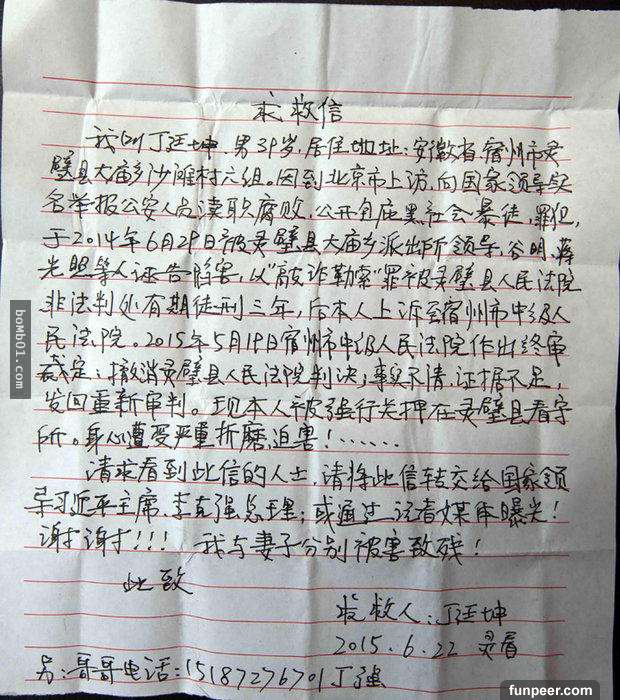 求救信
我叫丁廷坤、男39岁,居住地址:安徽省宿州市灵
璧县大庙乡沙滩村六组。因到北京市上访,向国家领导实
名举报公安人员渎职腐败,公开包庇黑社会暴徒,罪犯,
于2014年6月29日被灵璧县大庙乡派出所领导,谷明,蒋
光照等人诬告陷害,以"敲诈勒索"罪被灵璧县人民法院
非法判处有期徒刑三年,后本人上诉至宿州市中级人
民法院。2015年5月19日宿州市中级人民法院作出终审
裁定:撤消灵璧县人民法院判决,事实不清,证据不足,
发回重新审判。现本人被强行关押在灵璧县看守
所。身心遭受严重折磨,迫害!......
请求看到此信的人士,请将此信转交给国家领
导习近平主席、李克强总理;或通过记者媒体曝光!
谢谢!!! 我与妻子分别被害致残!
此致
求救人:丁廷坤
2015.6.22 灵看
另:哥哥电话:15187276701丁强
bomb01.com
funpeer.com